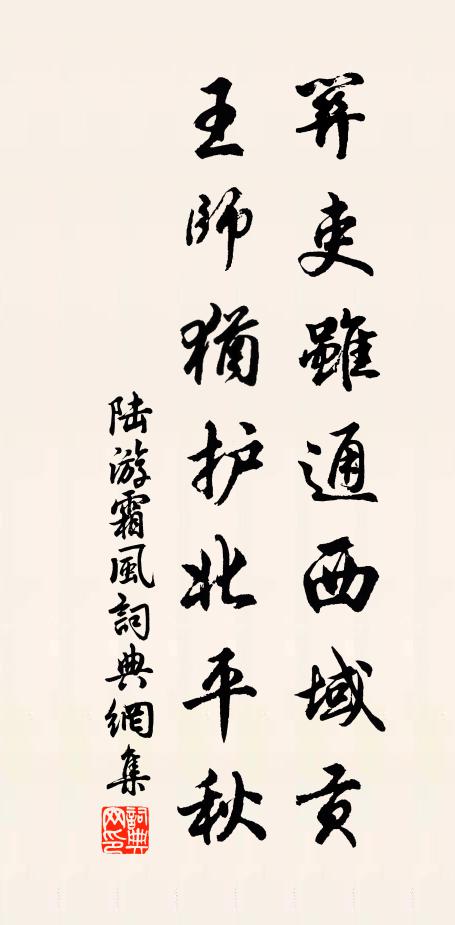 吏雖通西域貢
王師猶护北平秋
陆游霜風詞典網集
詞典
网印